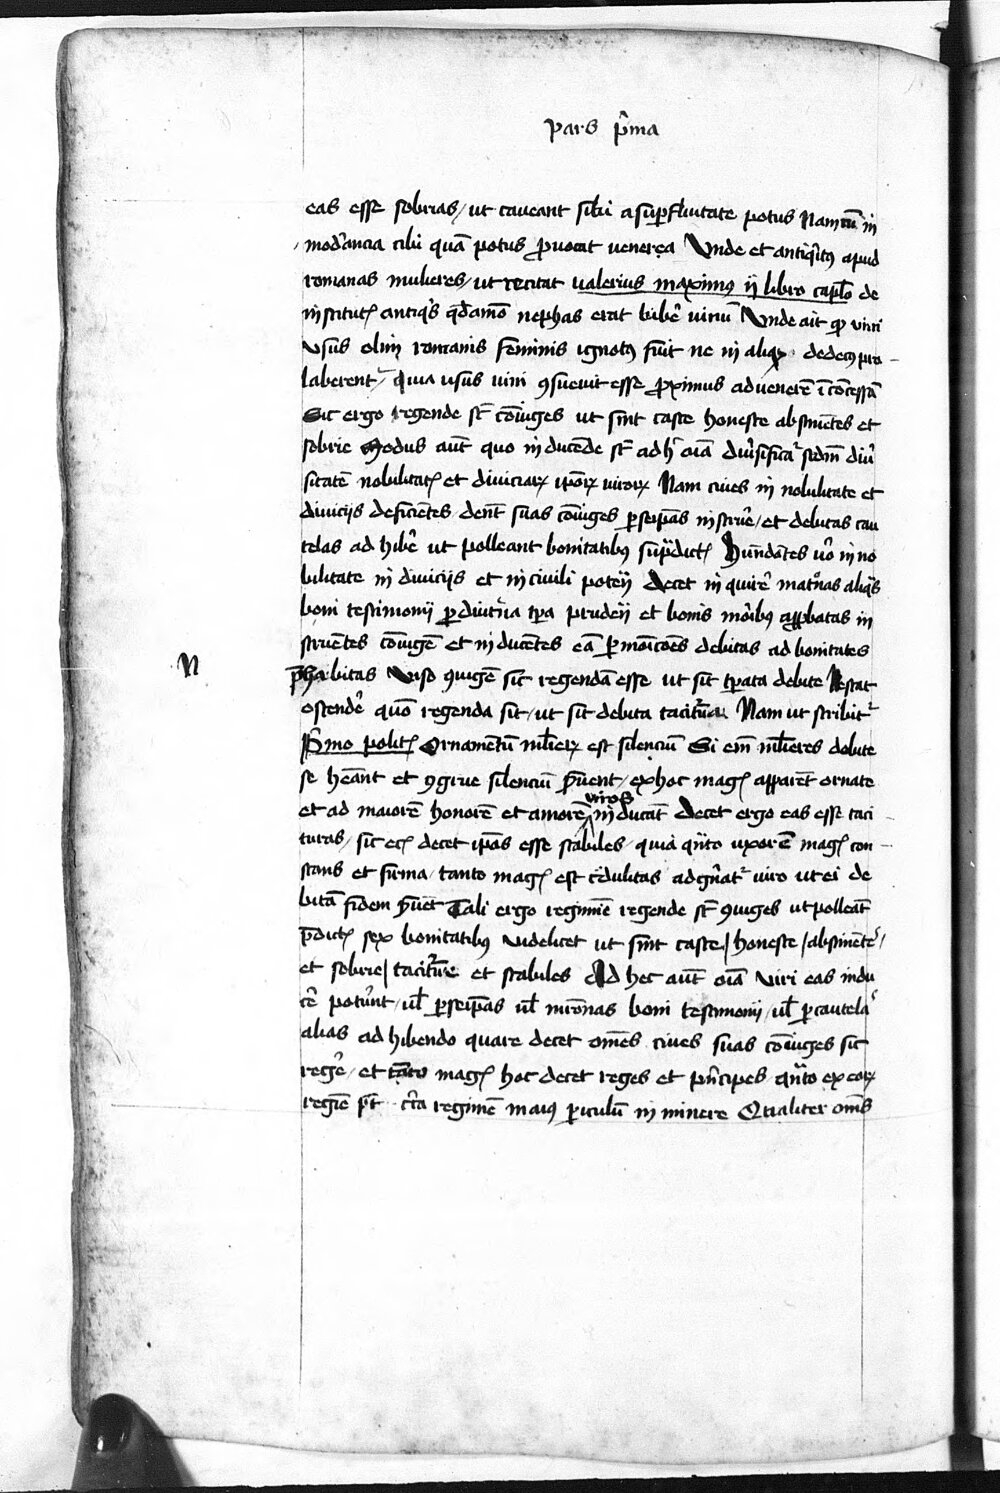 Pars p̄ma
eas esse sobrias / ut caveant sibi a sup̱fluitate potus Nam tū in
mod̄ancia cibi quā potus p̱vocat venerea Unde et antiq̄tꝰ apud
romanas mulieres / ut recitat valerius maximꝰ ij libro cap̄lo de
institutꝭ antiqͥs q̄dāmō nephas erat bibe᷑ vinū Unde ait ꝙ vini
usus olim romanis feminis ignotꝰ fuit ne in aliqꝫ dedecꝰ pro
laberent᷑ / quia usus vini ꝯsuevit esse p̱ximus ad venerē īcōcessā
Sic ergo regende st̄ cōiuges ut sint caste honeste abstinētes et
sobrie Modus aūt quo inducende st̄ ad h᷑ oīa div᷑sificat᷑ scdm̄ div᷑
sitatē nobilitatꝭ et diviciaꝝ ip̄oꝝ viroꝝ Nam cives in nobilitate et
diviciis deficiētes / dēnt suas cōiuges p̱ seip̄as instrue᷑ / et debitas cau
telas adhibe᷑ ut polleant bonitatibꝰ sup̱dictꝭ Hūndātes v᷑o in no
bilitate in diviciis et in civili potēii decet inquire᷑ mat᷑nas aliq̄s
boni testimonii p̱ diut᷑na tp̄a prudēii et bonis mōibꝰ app̱batas in
struētes cōiugē et inducētes eā p̱ mōicōes debitas ad bonitates
p̄habitas Viso ꝯiugē sic regendā esse ut sit tp̄ata debite Restat
ostende᷑ quō regenda sit / ut sit debita tacit᷑na Nam ut scribit᷑
p͂mo politꝭ Ornamētū ml̄ieꝝ est silenciū Si em̄ ml̄ieres debite
se hēant et ꝯgrue silenciū p̱ueīnt / ex hoc magꝭ apparēt ornate
et ad maiorē honorē et amorē viros inducāt Decet ergo eas esse taci
turas / sic ecꝭ decet ip̄as esse stabiles / quia q̄nto uxor ē magꝭ con
stans et firma / tanto magꝭ est c᷑dulitas adgn̄at᷑ viro ut ei de
bitā fidem s᷑uet Tali ergo regimīe regende st̄ ꝯiuges ut polleāt
p̄dictꝭ sex bonitatibꝰ videlicet ut sint caste / honeste / abstinēte᷑ /
et sobrie / tacit᷑ne et stabiles Ad hec aūt oīa viri eas indu
c᷑e pot᷑unt / ul̄ p̱ seip̄as ul̄ m᷑ronas boni testimonii / ul̄ p̱ cautela᷑
alias adhibendo quare decet om̄es cives suas cōiuges sic
rege᷑ / et tāto magꝭ hoc decet reges et p᷑ncipes q̄nto ex eoꝝ
regīe p̄t c᷑ca regimē maiꝰ p̱iculū inminere Qualiter om̄s
N